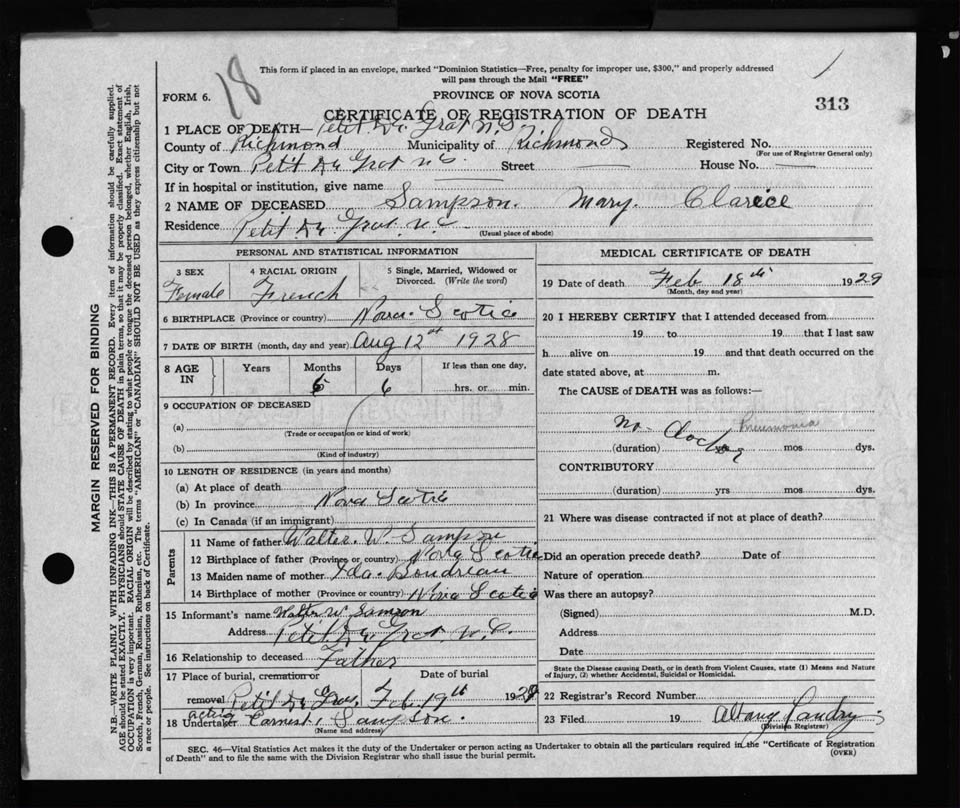 18
This form if placed in an envelope, marked "Dominion Statistics—Free, penalty for improper use, $300," and properly addressed
will pass through the Mail "FREE"
FORM 6.
PROVINCE OF NOVA SCOTIA
CERTIFICATE OF REGISTRATION OF DEATH
313
1 PLACE OF DEATH— Petit De Grat N.S.
County of Richmond Municipality of Richmond Registered No.
(For use of Registrar General only)
City or Town Petit De Grat Street House No.
If in hospital or institution, give name
2 NAME OF DECEASED Sampson. Mary. Clarice
Residence Petit De Grat.
(Usual place of abode)
PERSONAL AND STATISTICAL INFORMATION
3 SEX 4 RACIAL ORIGIN 5 Single, Married, Widowed or
Divorced. (Write the word)
Female French
6 BIRTHPLACE (Province or country) Nova Scotia
7 DATE OF BIRTH (month, day and year) Aug 12th 1928
8 AGE IN Years Months Days If less than one day,
6 6 hrs. or min.
9 OCCUPATION OF DECEASED
(a)
(Trade or occupation or kind of work)
(b)
(Kind of industry)
10 LENGTH OF RESIDENCE (in years and months)
(a) At place of death
(b) In province Nova Scotia
(c) In Canada (if an immigrant)
Parents
11 Name of father Walter. W. Sampson
12 Birthplace of father (Province or country) Nova Scotia
13 Maiden name of mother Ida. Boudreau
14 Birthplace of mother (Province or country) Nova Scotia
15 Informant's name Walter W Samson
Address Petit De Grat
16 Relationship to deceased Father
17 Place of burial, cremation or Date of burial
removal Petit De Grat Feb. 19th 1929
acting
18 Undertaker Earnest Sampson.
(Name and address)
MEDICAL CERTIFICATE OF DEATH
19 Date of death Feb 18th 1929
(Month, day and year)
20 I HEREBY CERTIFY that I attended deceased from
19 to 19 that I last saw
h alive on 19 and that death occurred on the
date stated above, at m.
The CAUSE of DEATH was as follows:—
No. Doctor Pneumonia
(duration) mos dys.
CONTRIBUTORY
(duration) yrs mos dys.
21 Where was disease contracted if not at place of death?
Did an operation precede death? Date of
Nature of operation
Was there an autopsy?
(Signed) M.D.
Address
Date
State the Disease causing Death, or in death from Violent Causes, state (1) Means and Nature
of Injury, (2) whether Accidental, Suicidal or Homicidal.
22 Registrar's Record Number
23 Filed 19 Albany Landry
(Division Registrar)
SEC. 46—Vital Statistics Act makes it the duty of the Undertaker or person acting as Undertaker to obtain all the particulars required in the "Certificate of Registration
of Death" and to file the same with the Division Registrar who shall issue the burial permit.
(OVER)
MARGIN RESERVED FOR BINDING
N.B.—WRITE PLAINLY WITH UNFADING INK—THIS IS A PERMANENT RECORD. Every item of information should be carefully supplied.
AGE should be stated EXACTLY. PHYSICIANS should STATE CAUSE OF DEATH in plain terms, so that it may be properly classified. Exact statement of
OCCUPATION is very important. RACIAL ORIGIN will be described by stating to what people or tongue the deceased person belonged, whether English, Irish,
Scotch, French, German, Russian, Ruthenian, etc. The terms "AMERICAN" or "CANADIAN" SHOULD NOT BE USED as they express citizenship but not
a race or people. See instructions on back of Certificate.